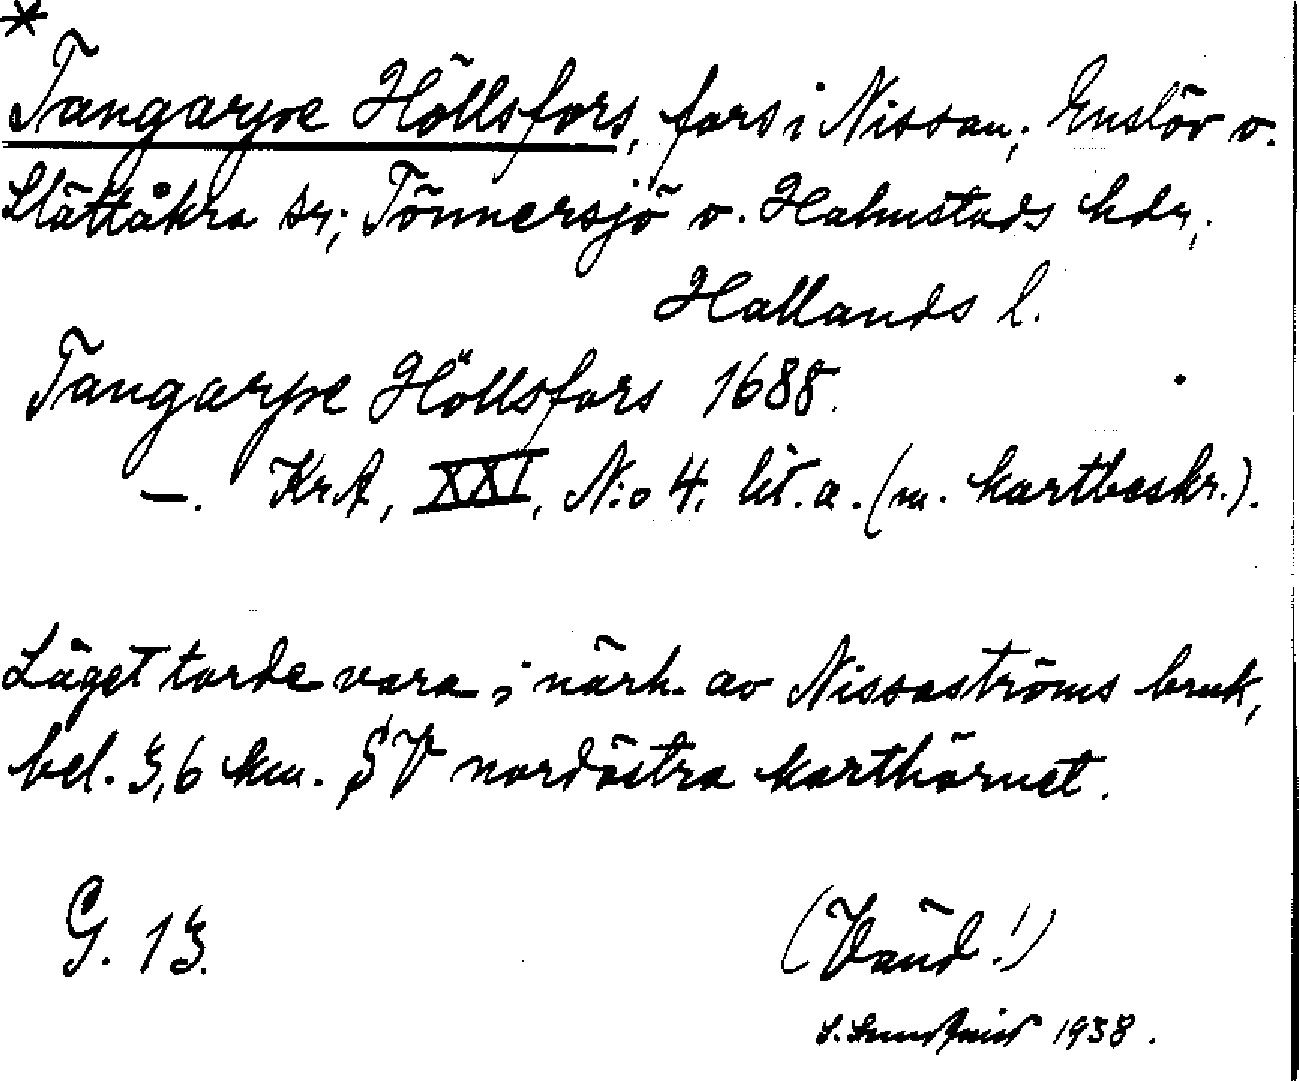 *
Tangarpe Höllsfors, fors i Nissan; Enslöv o.
Slättåkra sr; Tönnersjö o. Halmstads hdr,
Hallands l.
Tangarpe Höllsfors 1688.
—. Kr.A, XXI, N:o 4. lit. a. (m. kartbeskr.).
Läget torde vara i närh. av Nissaströms bruk,
bel. 3,6 km. SV nordöstra karthörnet.
G. 13.
(Vänd!)
1938.